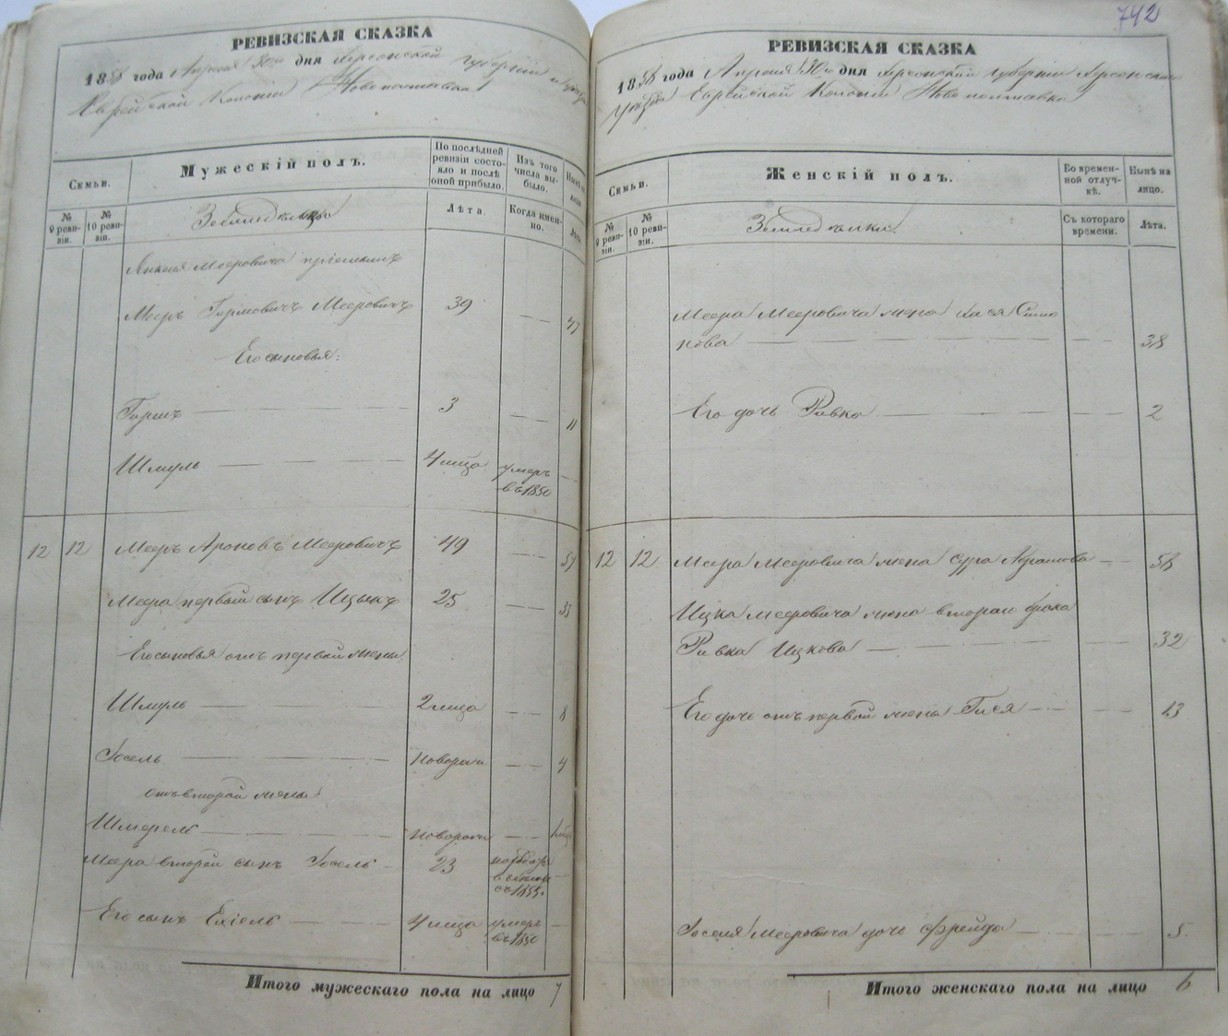 РЕВИЗСКАЯ СКАЗКА
1858 года Апреля 30го дня Херсонской губерніи и уезда
Еврейской Колоніи Новополтавки
Семьи.
Мужескій полъ.
По послѣдней ревизіи состояло и послѣ оной прибыло.
Изъ того числа выбыло.
№ 9 ревизіи.
№ 10 ревизіи.
Лѣта.
Когда именно.
Земледельцы
Мееровича пріемышъ
Мееръ Гершовичъ Мееровичъ 39 — 47
Его сыновья:
Гершъ — 3 — 11
Шмуль — 4 мѣсяца умеръ въ 1850 —
12 12 Мееръ Ароновъ Мееровичъ 49 — 57
Меера первый сынъ Ицыкъ 25 — 33
Его сыновья отъ первой жены
Шмуль — 2 мѣсяца — 8
Іосель — новорож. — 4
отъ второй жены
Шмерель — новорож —
Меера второй сынъ Іосель — 23
Его сынъ — 4 мѣсяца умеръ въ 1850 —
Итого мужескаго пола на лицо 7
742
РЕВИЗСКАЯ СКАЗКА
1858 года Апреля 30го дня Херсонской губерніи Херсонскаго
уезда Еврейской Колоніи Новополтавки
Семьи.
Женскій полъ.
Во временной отлучкѣ.
Нынѣ на лицо.
№ 9 ревизіи.
№ 10 ревизіи.
Съ котораго времени.
Лѣта.
Земледелки
Меера Мееровича жена Хася Симо
нова — 38
Его дочь Ривка — 2
12 12 Меера Мееровича жена Сура Абрамова — 58
Ицка Мееровича жена втораго брака
Ривка Ицкова — 32
Его дочь отъ первой жены Гися — 13
Іоселя Мееровича дочь Фрейда — 5
Итого женскаго пола на лицо 6